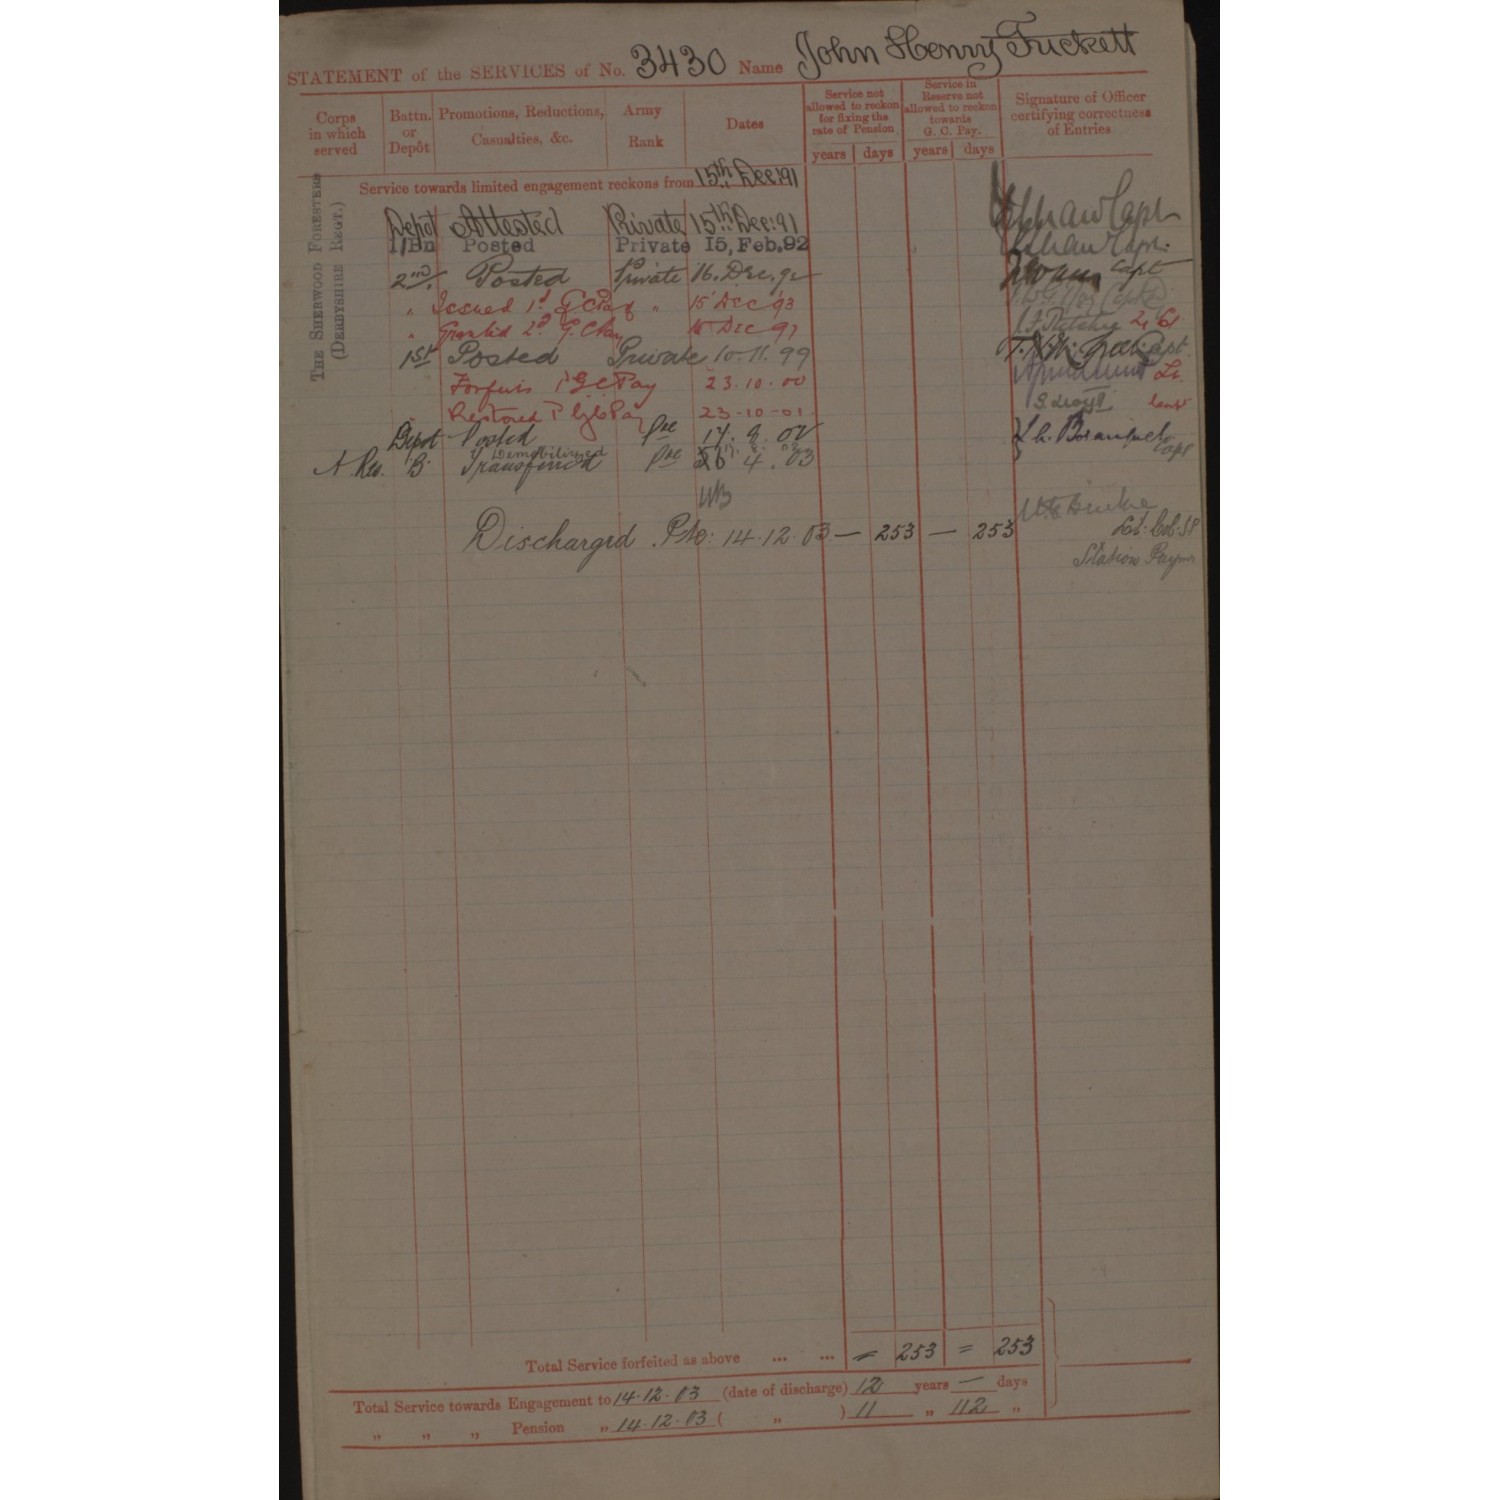 STATEMENT of the SERVICES of No. 3430 Name John Henry Tuckett
Corps in which served
Battn. or Depôt
Promotions, Reductions, Casualties, &c.
Army Rank
Dates
Service not allowed to reckon for fixing the rate of Pension
years days
Service in Reserve not allowed to reckon towards G. C. Pay.
years days
Signature of Officer certifying correctness of Entries
THE SHERWOOD FORESTERS
(DERBYSHIRE REGT.)
Service towards limited engagement reckons from 15th Dec: 91
Depot Attested Private 15th Dec: 91 Capt
1/Bn Posted Private 15, Feb. 92 Capt.
2nd. Posted Private 16. Dec. 92 Capt
" Issued 1st G C Pay " 15 Dec 93
" Granted 2nd G. C Pay 15 Dec 97
1st Posted Private 10.11.99 Capt.
Forfeits 1 G C Pay 23.10.00 Lt.
Restored 1 G C Pay 23-10-01
Depot Posted Pte 17. 9. 02
Demobilized
A. Res. B. Transferred Pte 26 4. 03 Capt
Discharged Pte: 14.12.03 — 253 — 253 Lt: Col: SP
Station Paymr
Total Service forfeited as above ... ... = 253 = 253
Total Service towards Engagement to 14.12.03 (date of discharge) 12 years — days
" " " Pension " 14.12.03 ( " ) 11 " 112 "